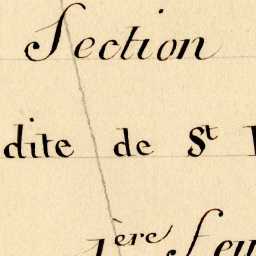 Section
dite de St
1ère feu